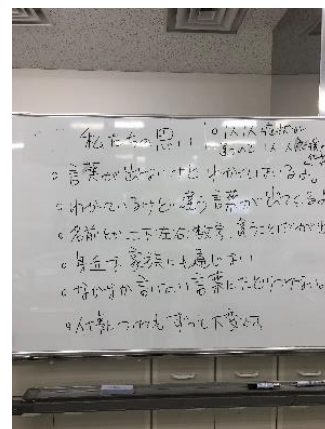 私たちの思い
○1人1人症状が
違う
○言葉が出ないけどわかっているよ。
○わかっているけど、違う言葉が出てくるよ
○名前とか、上下左右、数字、違うことばが出
○身近な家族にも通じない
○なかなか言いたい言葉にたどりつけない
○いつもずっと不変です